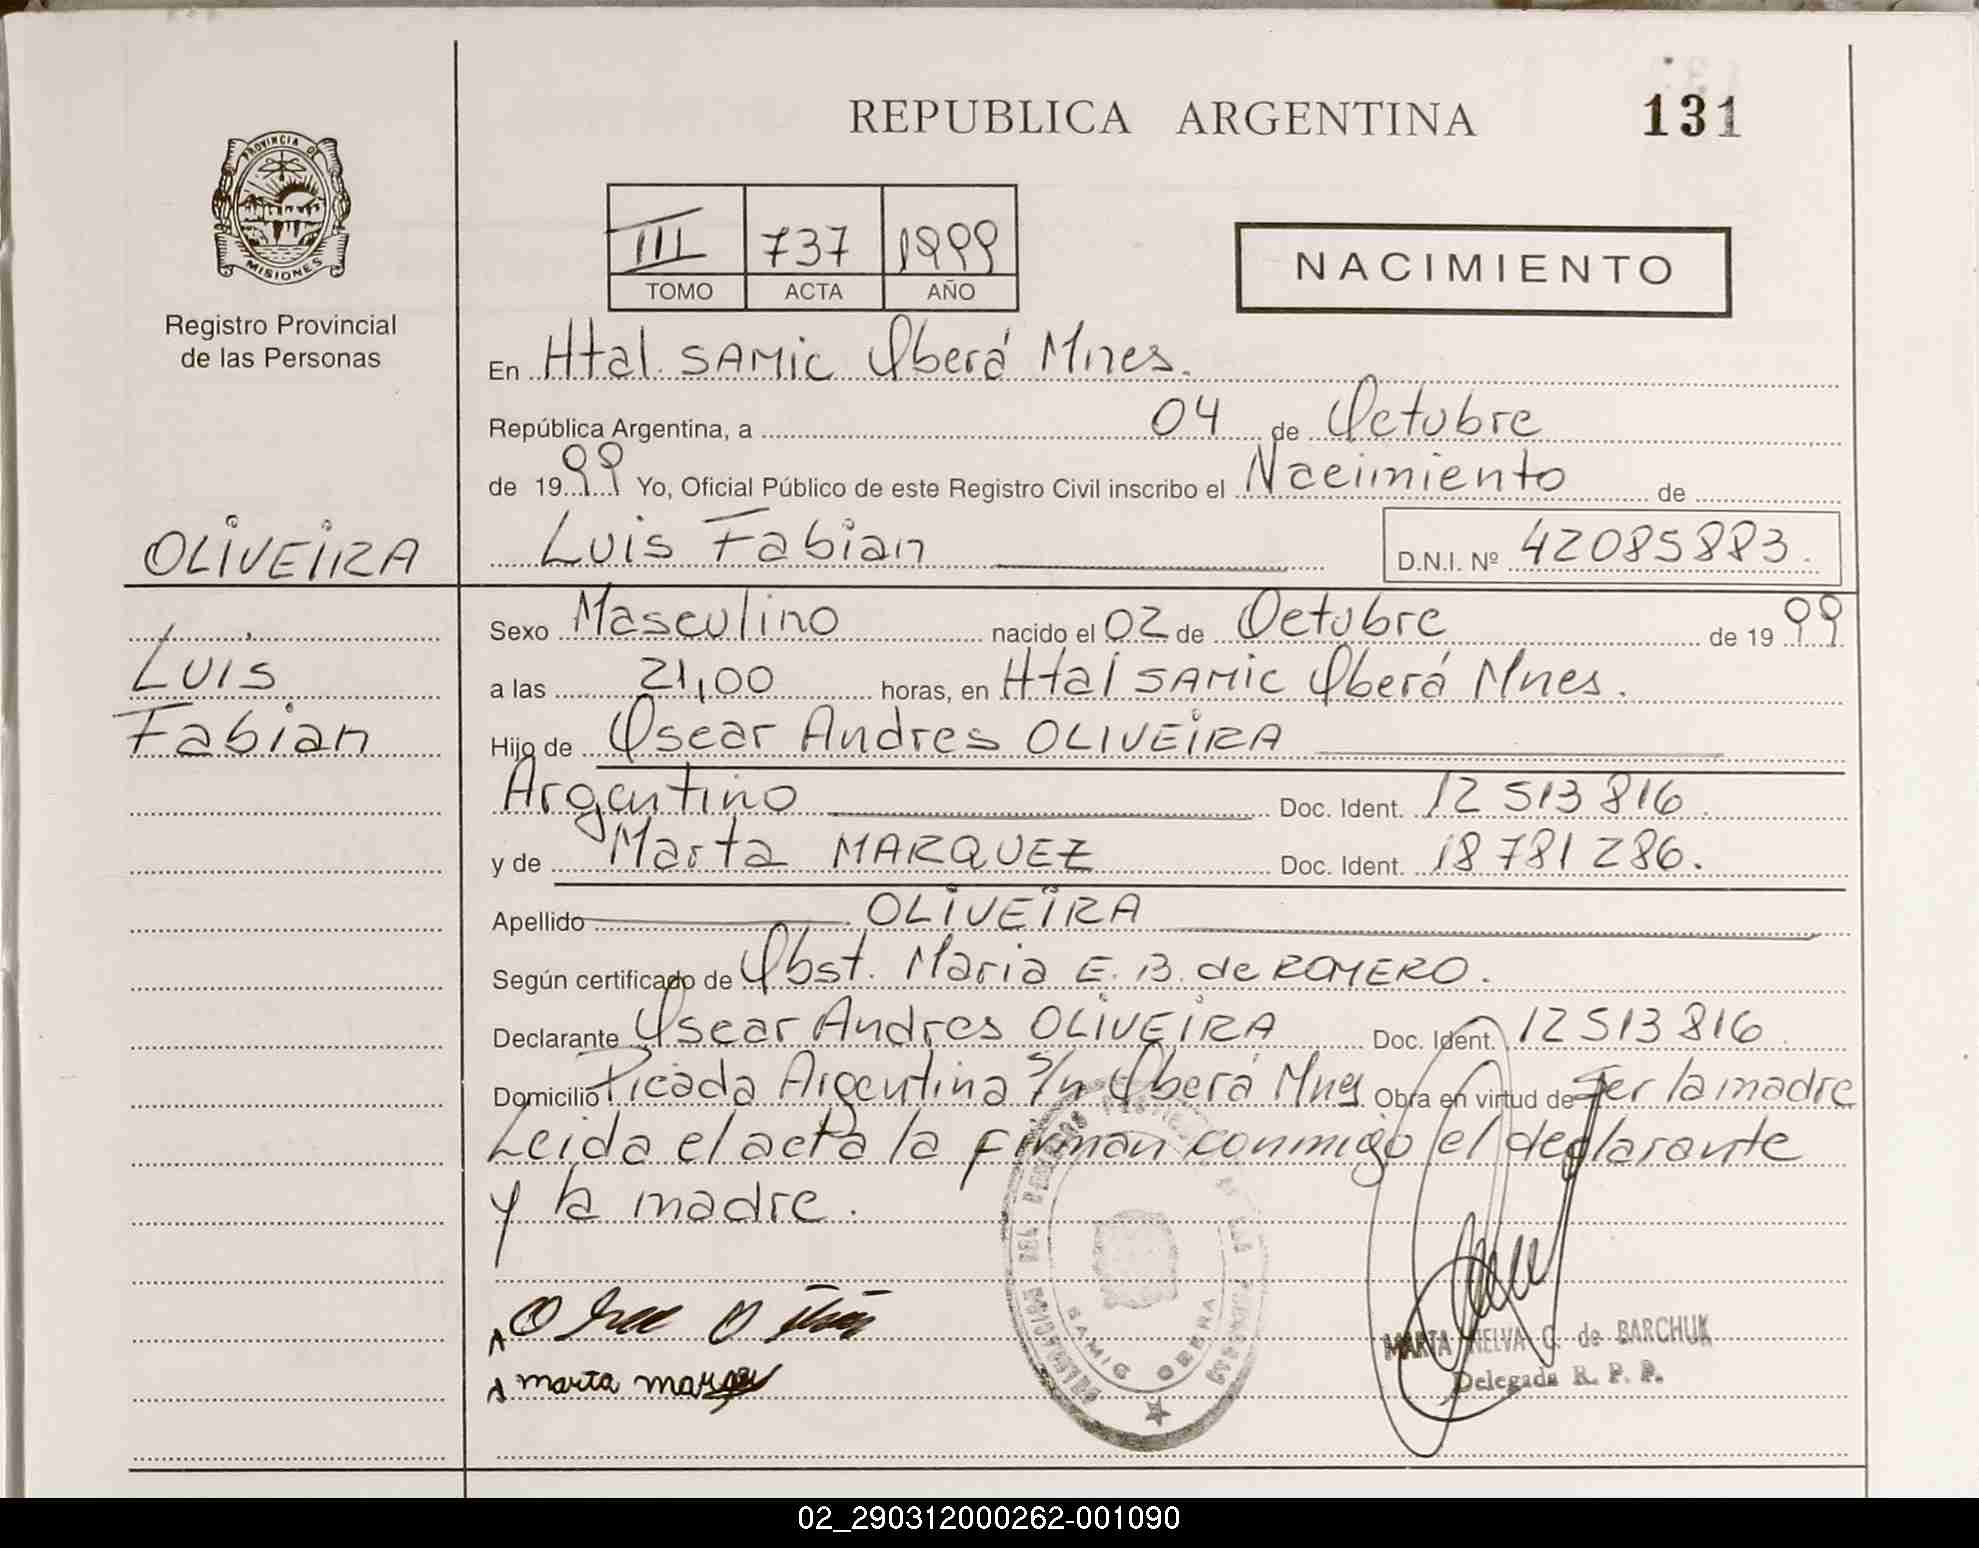 REPUBLICA ARGENTINA 131
PROVINCIA DE
MISIONES
Registro Provincial
de las Personas
III 737 1999
TOMO ACTA AÑO
NACIMIENTO
En Htal. SAMIC Oberá Mnes.
República Argentina, a 04 de Octubre
de 1999 Yo, Oficial Público de este Registro Civil inscribo el Nacimiento de
OLIVEIRA
Luis Fabian D.N.I. Nº 42085883.
Luis
Fabian
Sexo Masculino nacido el 02 de Octubre de 1999
a las 21,00 horas, en Htal SAMIC Oberá Mnes.
Hijo de Oscar Andres OLIVEIRA
Argentino Doc. Ident. 12 513 816.
y de Marta MARQUEZ Doc. Ident. 18 781 286.
Apellido OLIVEIRA
Según certificado de Obst. Maria E. B. de ROMERO.
Declarante Oscar Andres OLIVEIRA Doc. Ident. 12 513 816
Domicilio Picada Argentina S/n Oberá Mnes Obra en virtud de Ser la madre
Leida el acta la firman conmigo el declarante
y la madre.
marta
SAMIC OBERA
MARTA NELVA C. de BARCHUK
Delegada R. P. P.
02_290312000262-001090